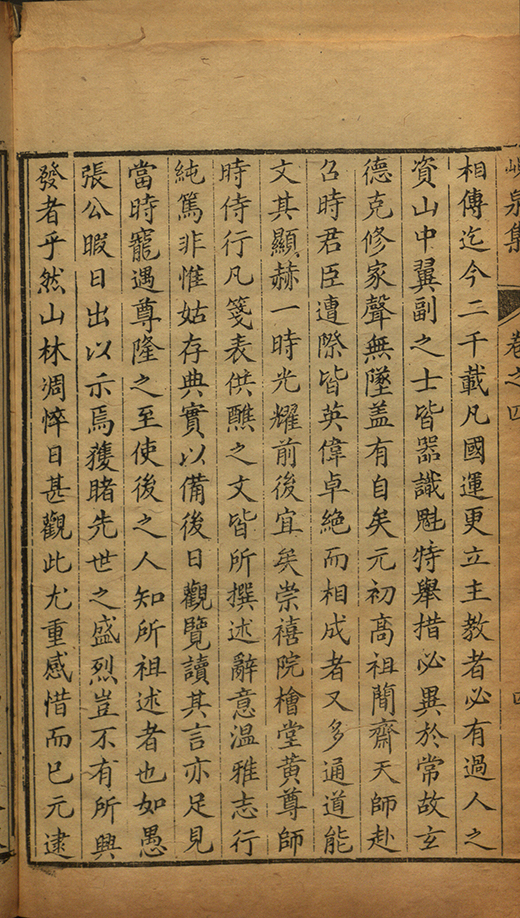 峴泉集
卷之四
四
相傳迄今二千載凡國運更立主教者必有過人之
資山中翼副之士皆器識魁特舉措必異於常故玄
德克修家聲無墜盖有自矣元初高祖簡齋天師赴
召時君臣遭際皆英偉卓絶而相成者又多通道能
文其顯赫一時光耀前後宜矣崇禧院檜堂黄尊師
時侍行凡箋表供醮之文皆所撰述辭意温雅志行
純篤非惟姑存典實以備後日觀覽讀其言亦足見
當時寵遇尊隆之至使後之人知所祖述者也如愚
張公暇日出以示焉獲睹先世之盛烈豈不有所興
發者乎然山林凋悴日甚觀此尤重感惜而已元逮